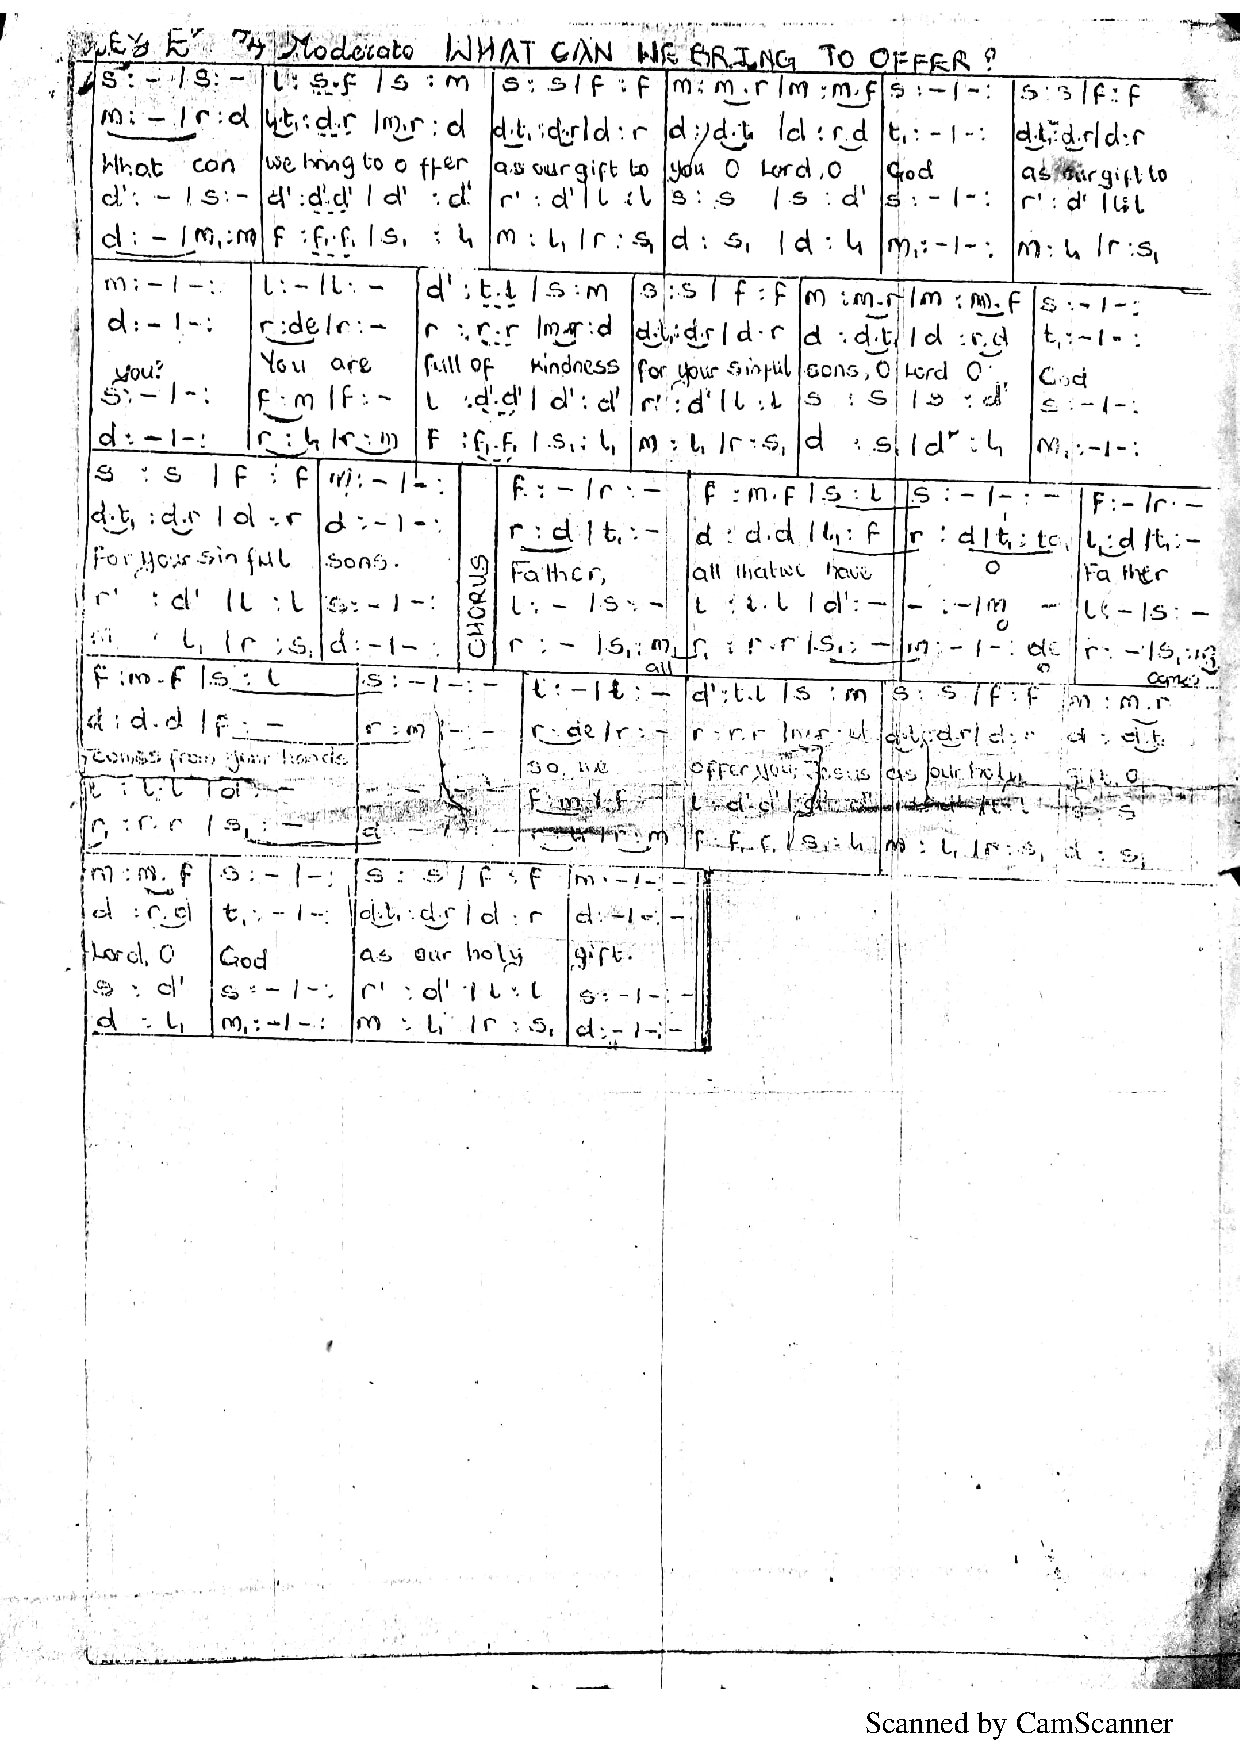 KEY E♭ 4/4 Moderato WHAT CAN WE BRING TO OFFER?
s : - / s : - | l : s.f / s : m | s : s / f : f | m : m.r / m : m.f | s : - / - : | s : s / f : f
m : - / r : d | l₁.t₁ : d.r / m.r : d | d.t₁ : d.r / d : r | d : d.t₁ / d : r.d | t₁ : - / - : | d.t₁ : d.r / d : r
What can | we bring to offer | as our gift to | you O Lord, O | God | as our gift to
d' : - / s : - | d' : d'.d' / d' : d' | r' : d' / l : l | s : s / s : d' | s : - / - : | r' : d' / l : l
d : - / m₁ : m | f : f₁.f₁ / s₁ : l₁ | m : l₁ / r : s₁ | d : s₁ / d : l₁ | m₁ : - / - : | m : l₁ / r : s₁
m : - / - : | l : - / l : - | d' : t.l / s : m | s : s / f : f | m : m.r / m : m.f | s : - / - :
d : - / - : | r : de / r : - | r : r.r / m.r : d | d.t₁ : d.r / d : r | d : d.t₁ / d : r.d | t₁ : - / - :
you? | You are | full of kindness | for your sinful | sons, O Lord O | God
s : - / - : | f : m / f : - | l : d'.d' / d' : d' | r' : d' / l : l | s : s / s : d' | s : - / - :
d : - / - : | r : l₁ / r : m | f : f₁.f₁ / s₁ : l₁ | m : l₁ / r : s₁ | d : s₁ / d : l₁ | m₁ : - / - :
s : s / f : f | m : - / - : | CHORUS | f : - / r : - | f : m.f / s : l | s : - / - : - | f : - / r : -
d.t₁ : d.r / d : r | d : - / - : | r : d / t₁ : - | d : d.d / l₁ : f | r : d / t₁ : ta₁ | l₁ : d / t₁ : -
For your sinful | sons. | Father, | all that we have | O | Father
r' : d' / l : l | s : - / - : | l : - / s : - | l : l.l / d' : - | - : - / m - | l : - / s : -
l₁ / r : s₁ | d : - / - : | r : - / s₁ : m₁ | r₁ : r.r / s₁ : - | m : - / - : de | r : - / s₁
all | O | O | comes
f : m.f / s : l | s : - / - : - | l : - / l : - | d' : t.l / s : m | s : s / f : f | m : m.r
d : d.d / f : - | r : m / - : - | r : de / r : - | r : r.r / m.r : d | d.t₁ : d.r / d : | d : d.t₁
comes from your hands | so, we | offer you, Jesus | as our holy | gift, O
l : l.l / d' : - | f : m / f : - | l : d'.d' / | : s
r₁ : r.r / s₁ : - | d - / - : - | r : l₁ / r : m | f : f₁.f₁ / s₁ : l₁ | m : l₁ / r : s₁ | d : s₁
m : m.f | s : - / - : | s : s / f : f | m : - / - : -
d : r.d | t₁ : - / - : | d.t₁ : d.r / d : r | d : - / - : -
Lord, O | God | as our holy | gift.
s : d' | s : - / - : | r' : d' / l : l | s : - / - : -
d : l₁ | m₁ : - / - : | m : l₁ / r : s₁ | d : - / - : -
Scanned by CamScanner